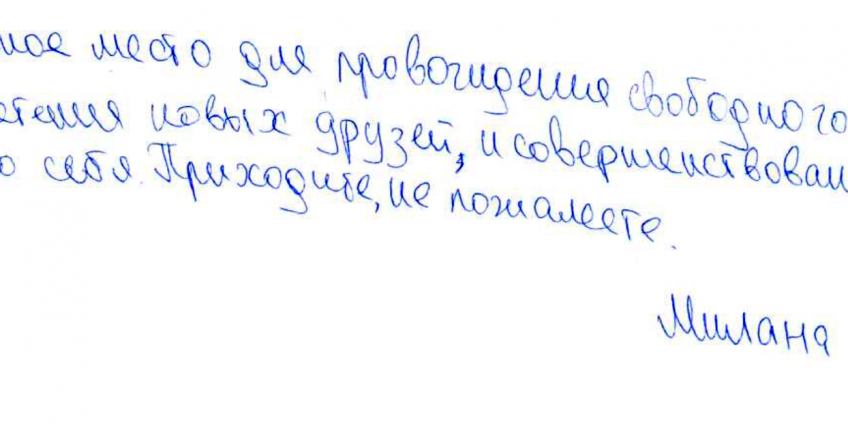 ное место для провождения свободного
етения новых друзей, и совершенствован
о себя. Приходите, не пожалеете.
Милана